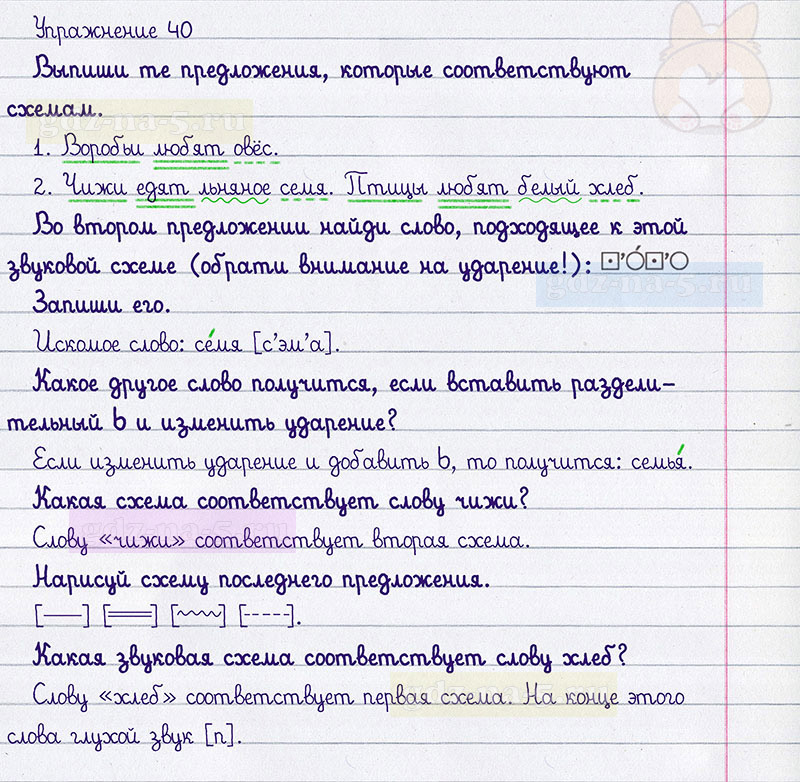 Упражнение 40
Выпиши те предложения, которые соответствуют
схемам.
gdz-na-5.ru
1. Воробьи любят овёс.
2. Чижи едят льняное семя. Птицы любят белый хлеб.
Во втором предложении найди слово, подходящее к этой
звуковой схеме (обрати внимание на ударение!):
gdz-na-5.ru
Запиши его.
Искомое слово: се́мя [с’эм’а].
Какое другое слово получится, если вставить раздели-
тельный ь и изменить ударение?
Если изменить ударение и добавить ь, то получится: семья́.
Какая схема соответствует слову чижи?
gdz-na-5.ru
Слову «чижи» соответствует вторая схема.
Нарисуй схему последнего предложения.
Какая звуковая схема соответствует слову хлеб?
gdz-na-5.ru
Слову «хлеб» соответствует первая схема. На конце этого
слова глухой звук [п].